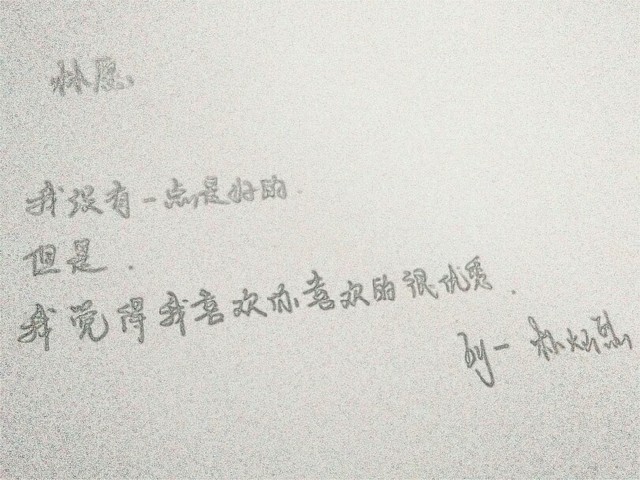 林愿
我没有一点是好的.
但是.
我觉得我喜欢你喜欢的很优秀.
by-林灿烈